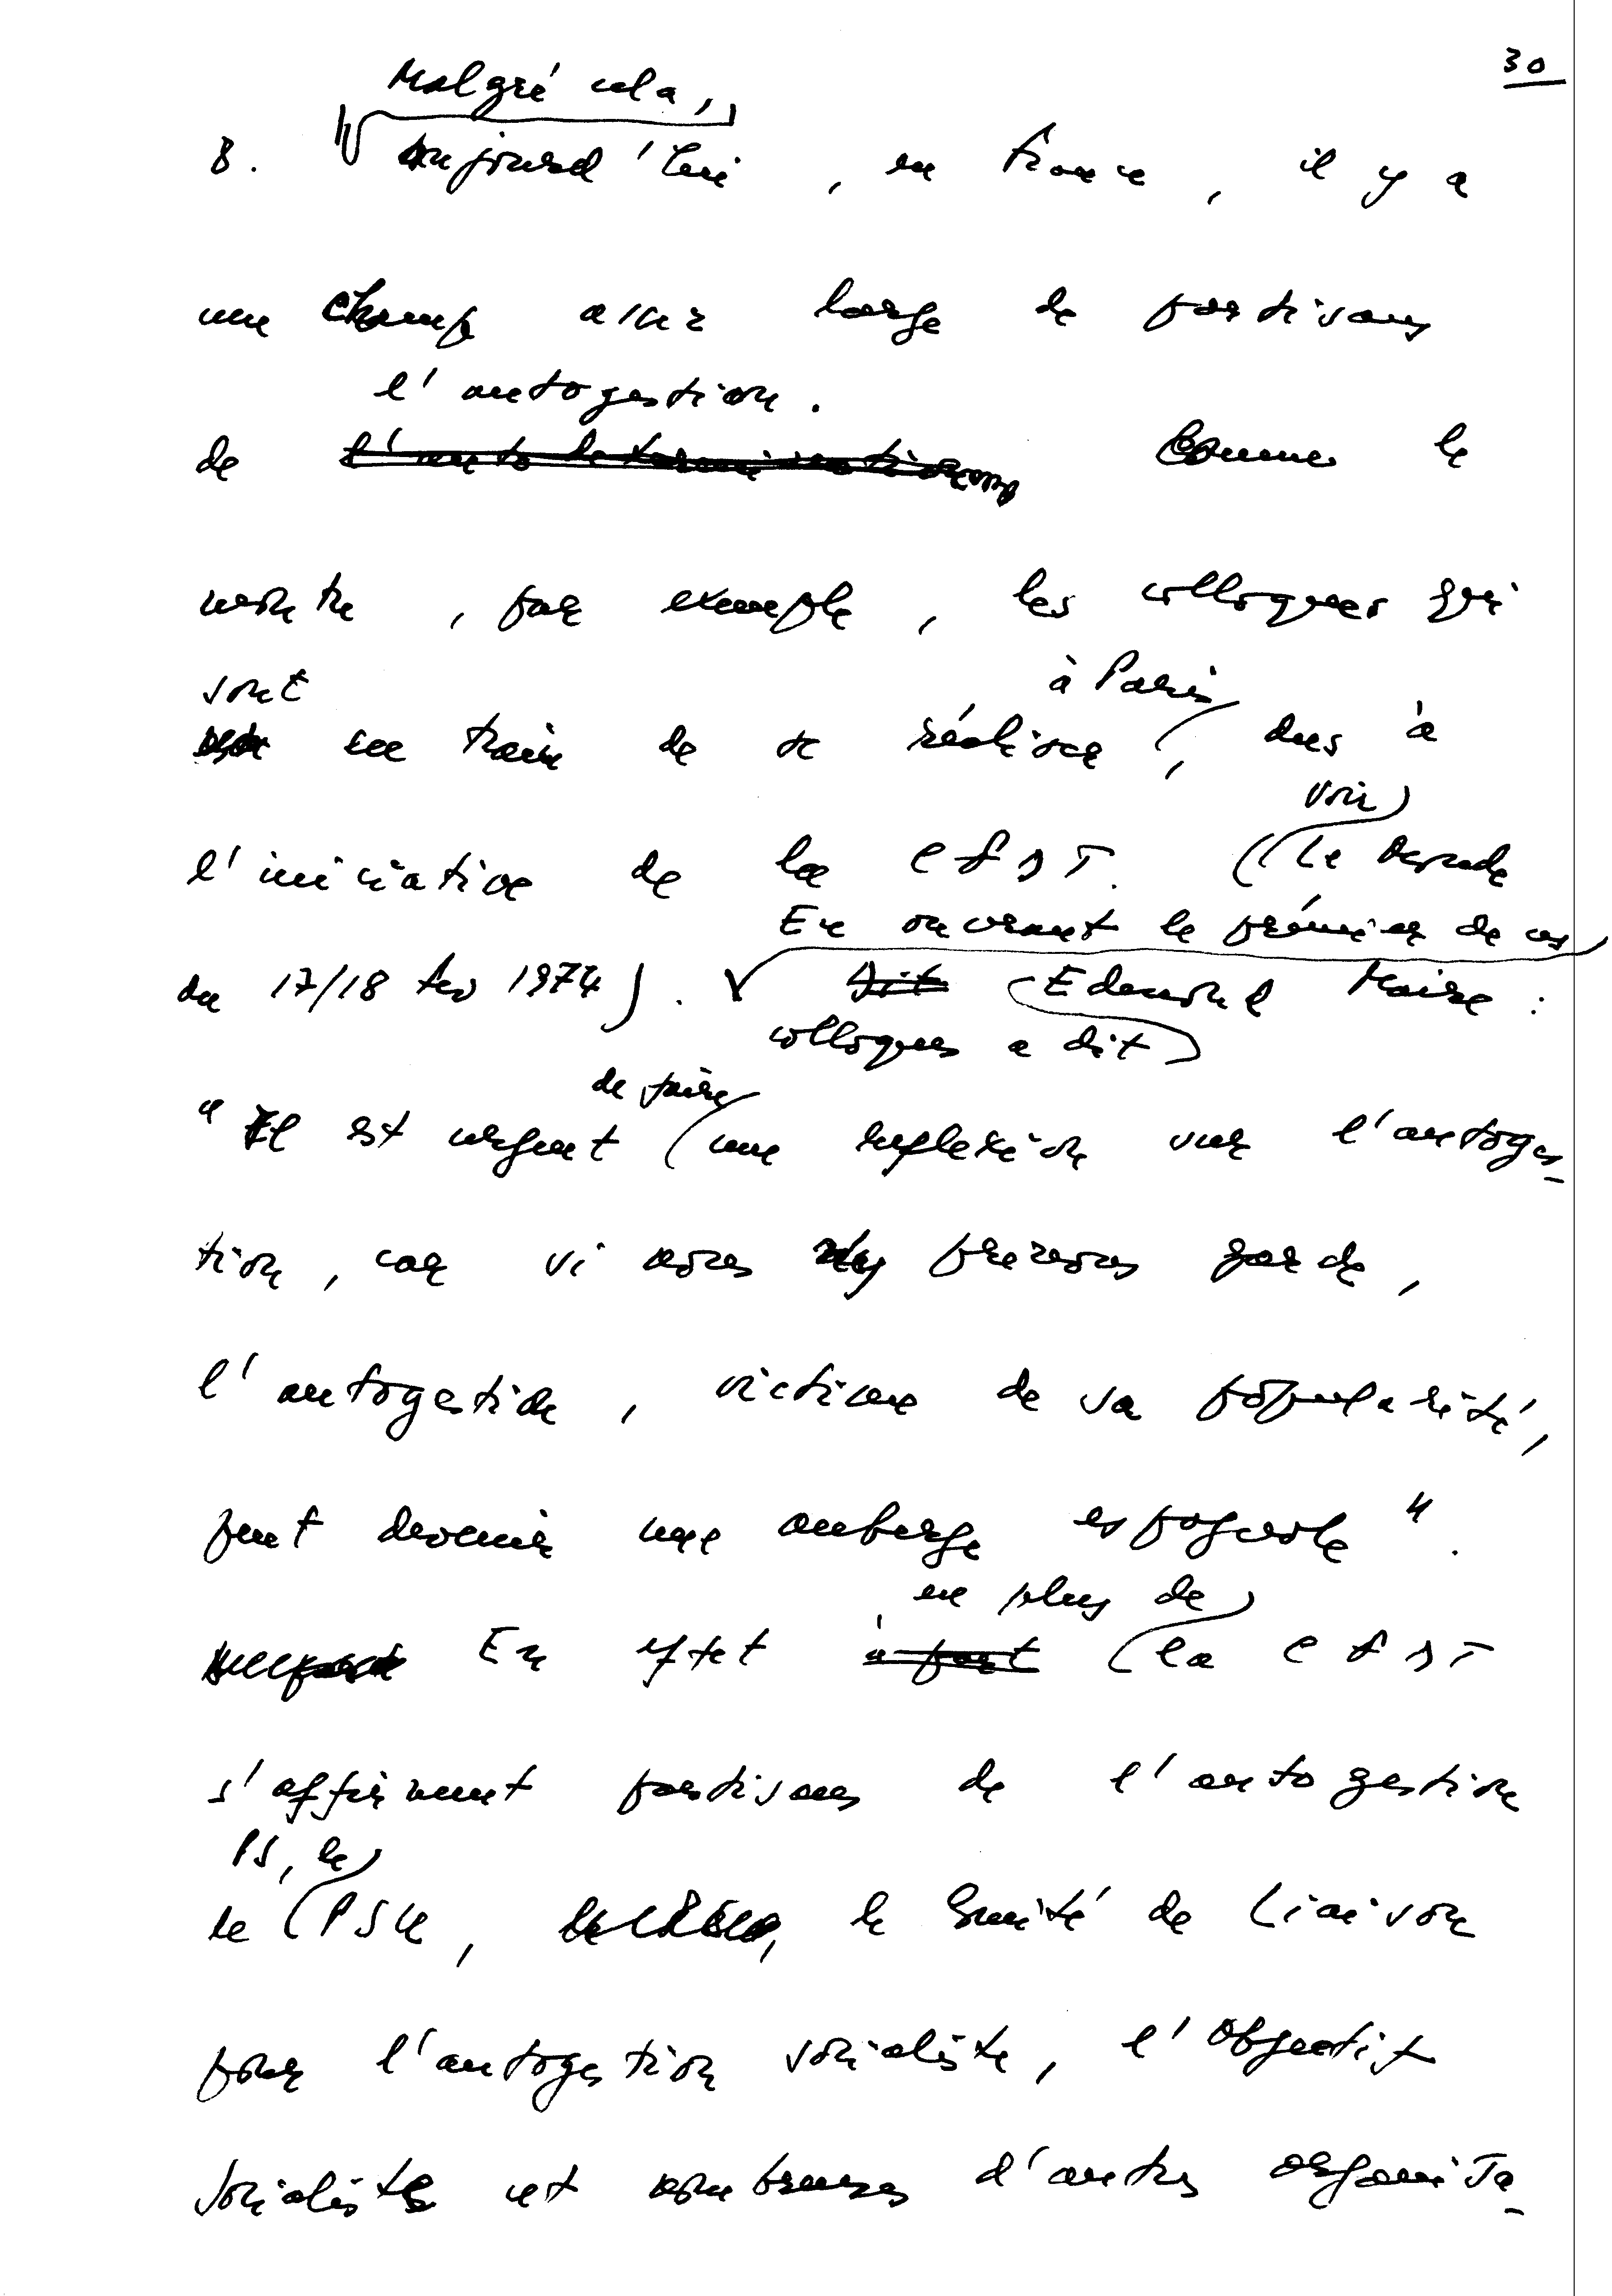 30
Malgré cela,
8. Aujourd'hui, en France, il y a
une champ assez large de partisans
l'autogestion.
de l'autodetermination Comme le
montre, par exemple, les colloques qui
sont à Paris
en train de se réaliser, dus à
voir
l'iniciative de la CFDT. (Le Monde
En ouvrant le prémier de ces
du 17/18 fev 1974). Dit Edmond Maire :
colloques a dit
de faire
"Il est urgent une reflexion sur l'autoges-
tion, car si nous n'y prenons garde,
l'autogestion, victime de sa popularité,
peut devenir une auberge espagnole".
en plus de
En effet à part la CFDT
s'affirment partisans de l'autogestion
PS, le
le PSU, le Comité de Liaison
pour l'autogestion socialiste, l'Objectif
Socialiste et nombreuses d'autres organisa-